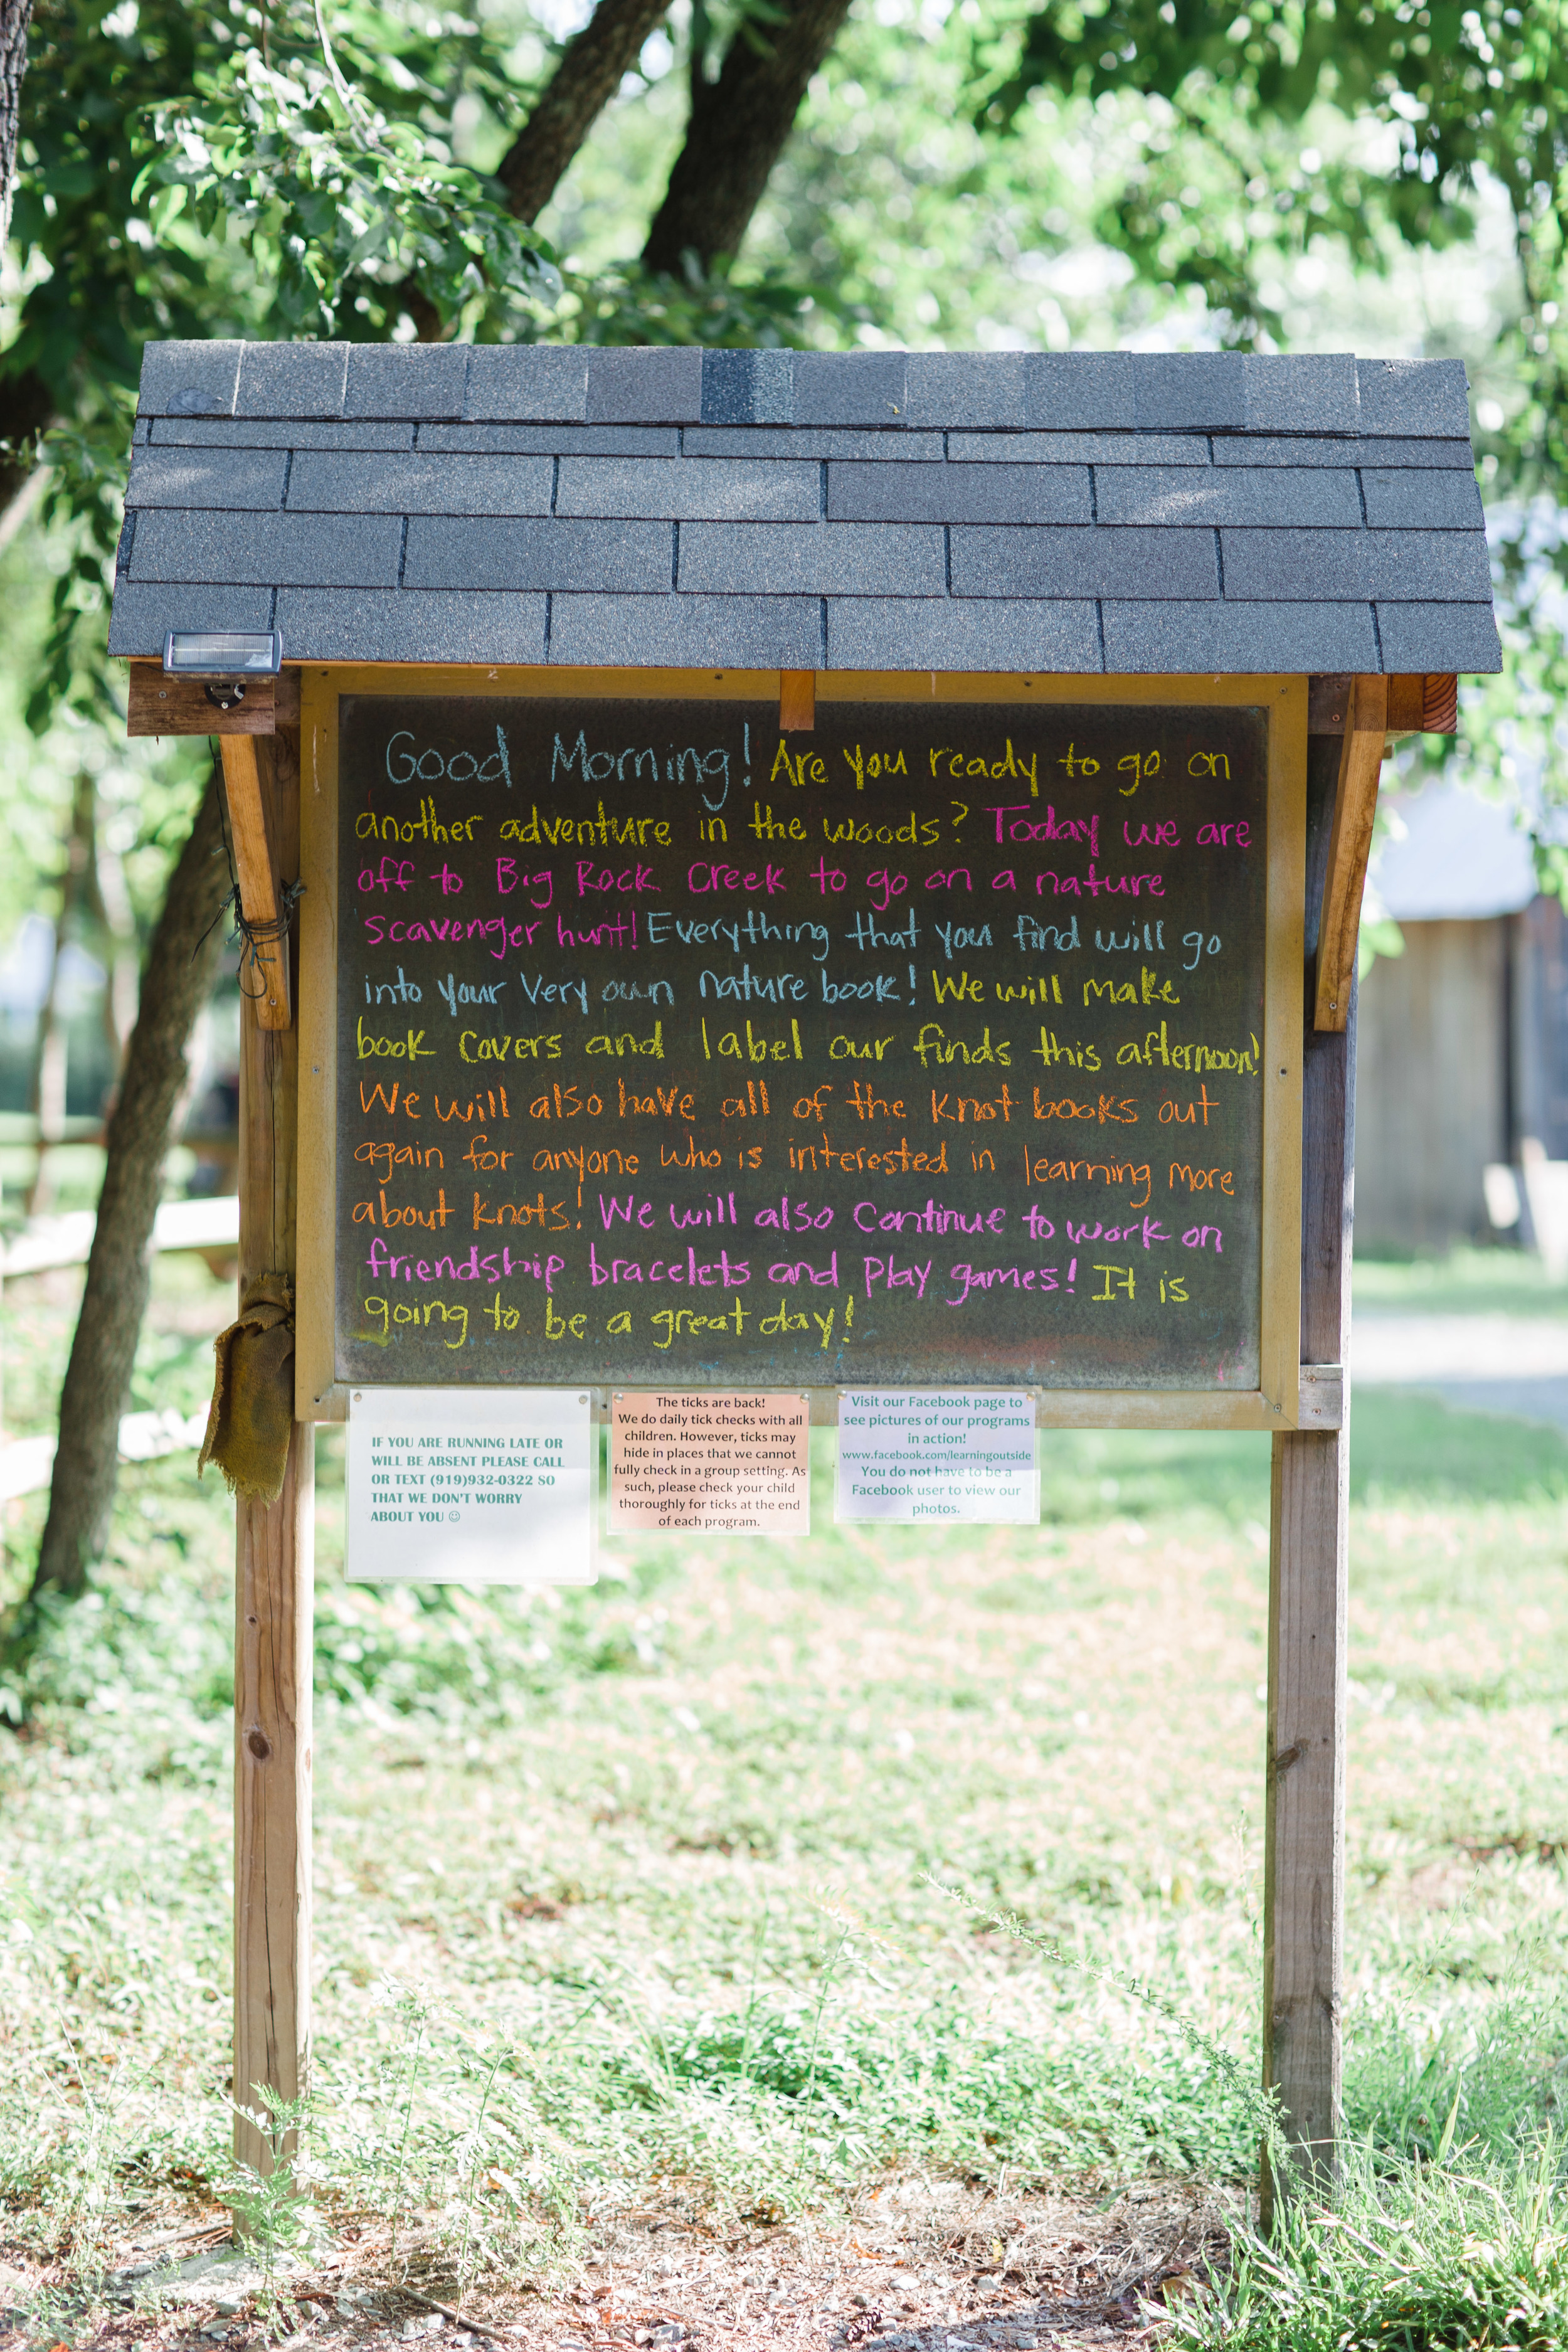 Good Morning! Are you ready to go on
another adventure in the woods? Today we are
off to Big Rock Creek to go on a nature
scavenger hunt! Everything that you find will go
into your very own nature book! We will make
book covers and label our finds this afternoon!
We will also have all of the knot books out
again for anyone who is interested in learning more
about knots! We will also continue to work on
friendship bracelets and play games! It is
going to be a great day!
IF YOU ARE RUNNING LATE OR
WILL BE ABSENT PLEASE CALL
OR TEXT (919)932-0322 SO
THAT WE DON'T WORRY
ABOUT YOU ☺
The ticks are back!
We do daily tick checks with all
children. However, ticks may
hide in places that we cannot
fully check in a group setting. As
such, please check your child
thoroughly for ticks at the end
of each program.
Visit our Facebook page to
see pictures of our programs
in action!
www.facebook.com/learningoutside
You do not have to be a
Facebook user to view our
photos.